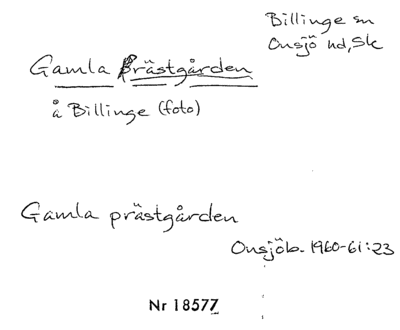 Billinge sn
Onsjö hd, Sk
Gamla Prästgården
å Billinge (foto)
Gamla prästgården
Onsjöb. 1960-61:23
Nr 18577